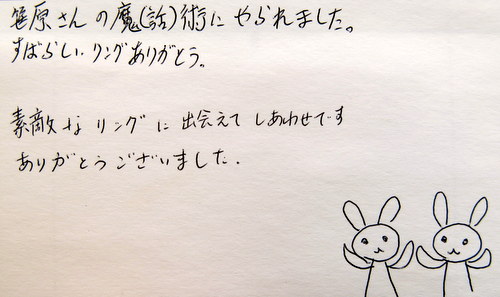 笹原さんの魔(話)術にやられました。
すばらしいリングありがとう。
素敵なリングに出会えてしあわせです
ありがとうございました.